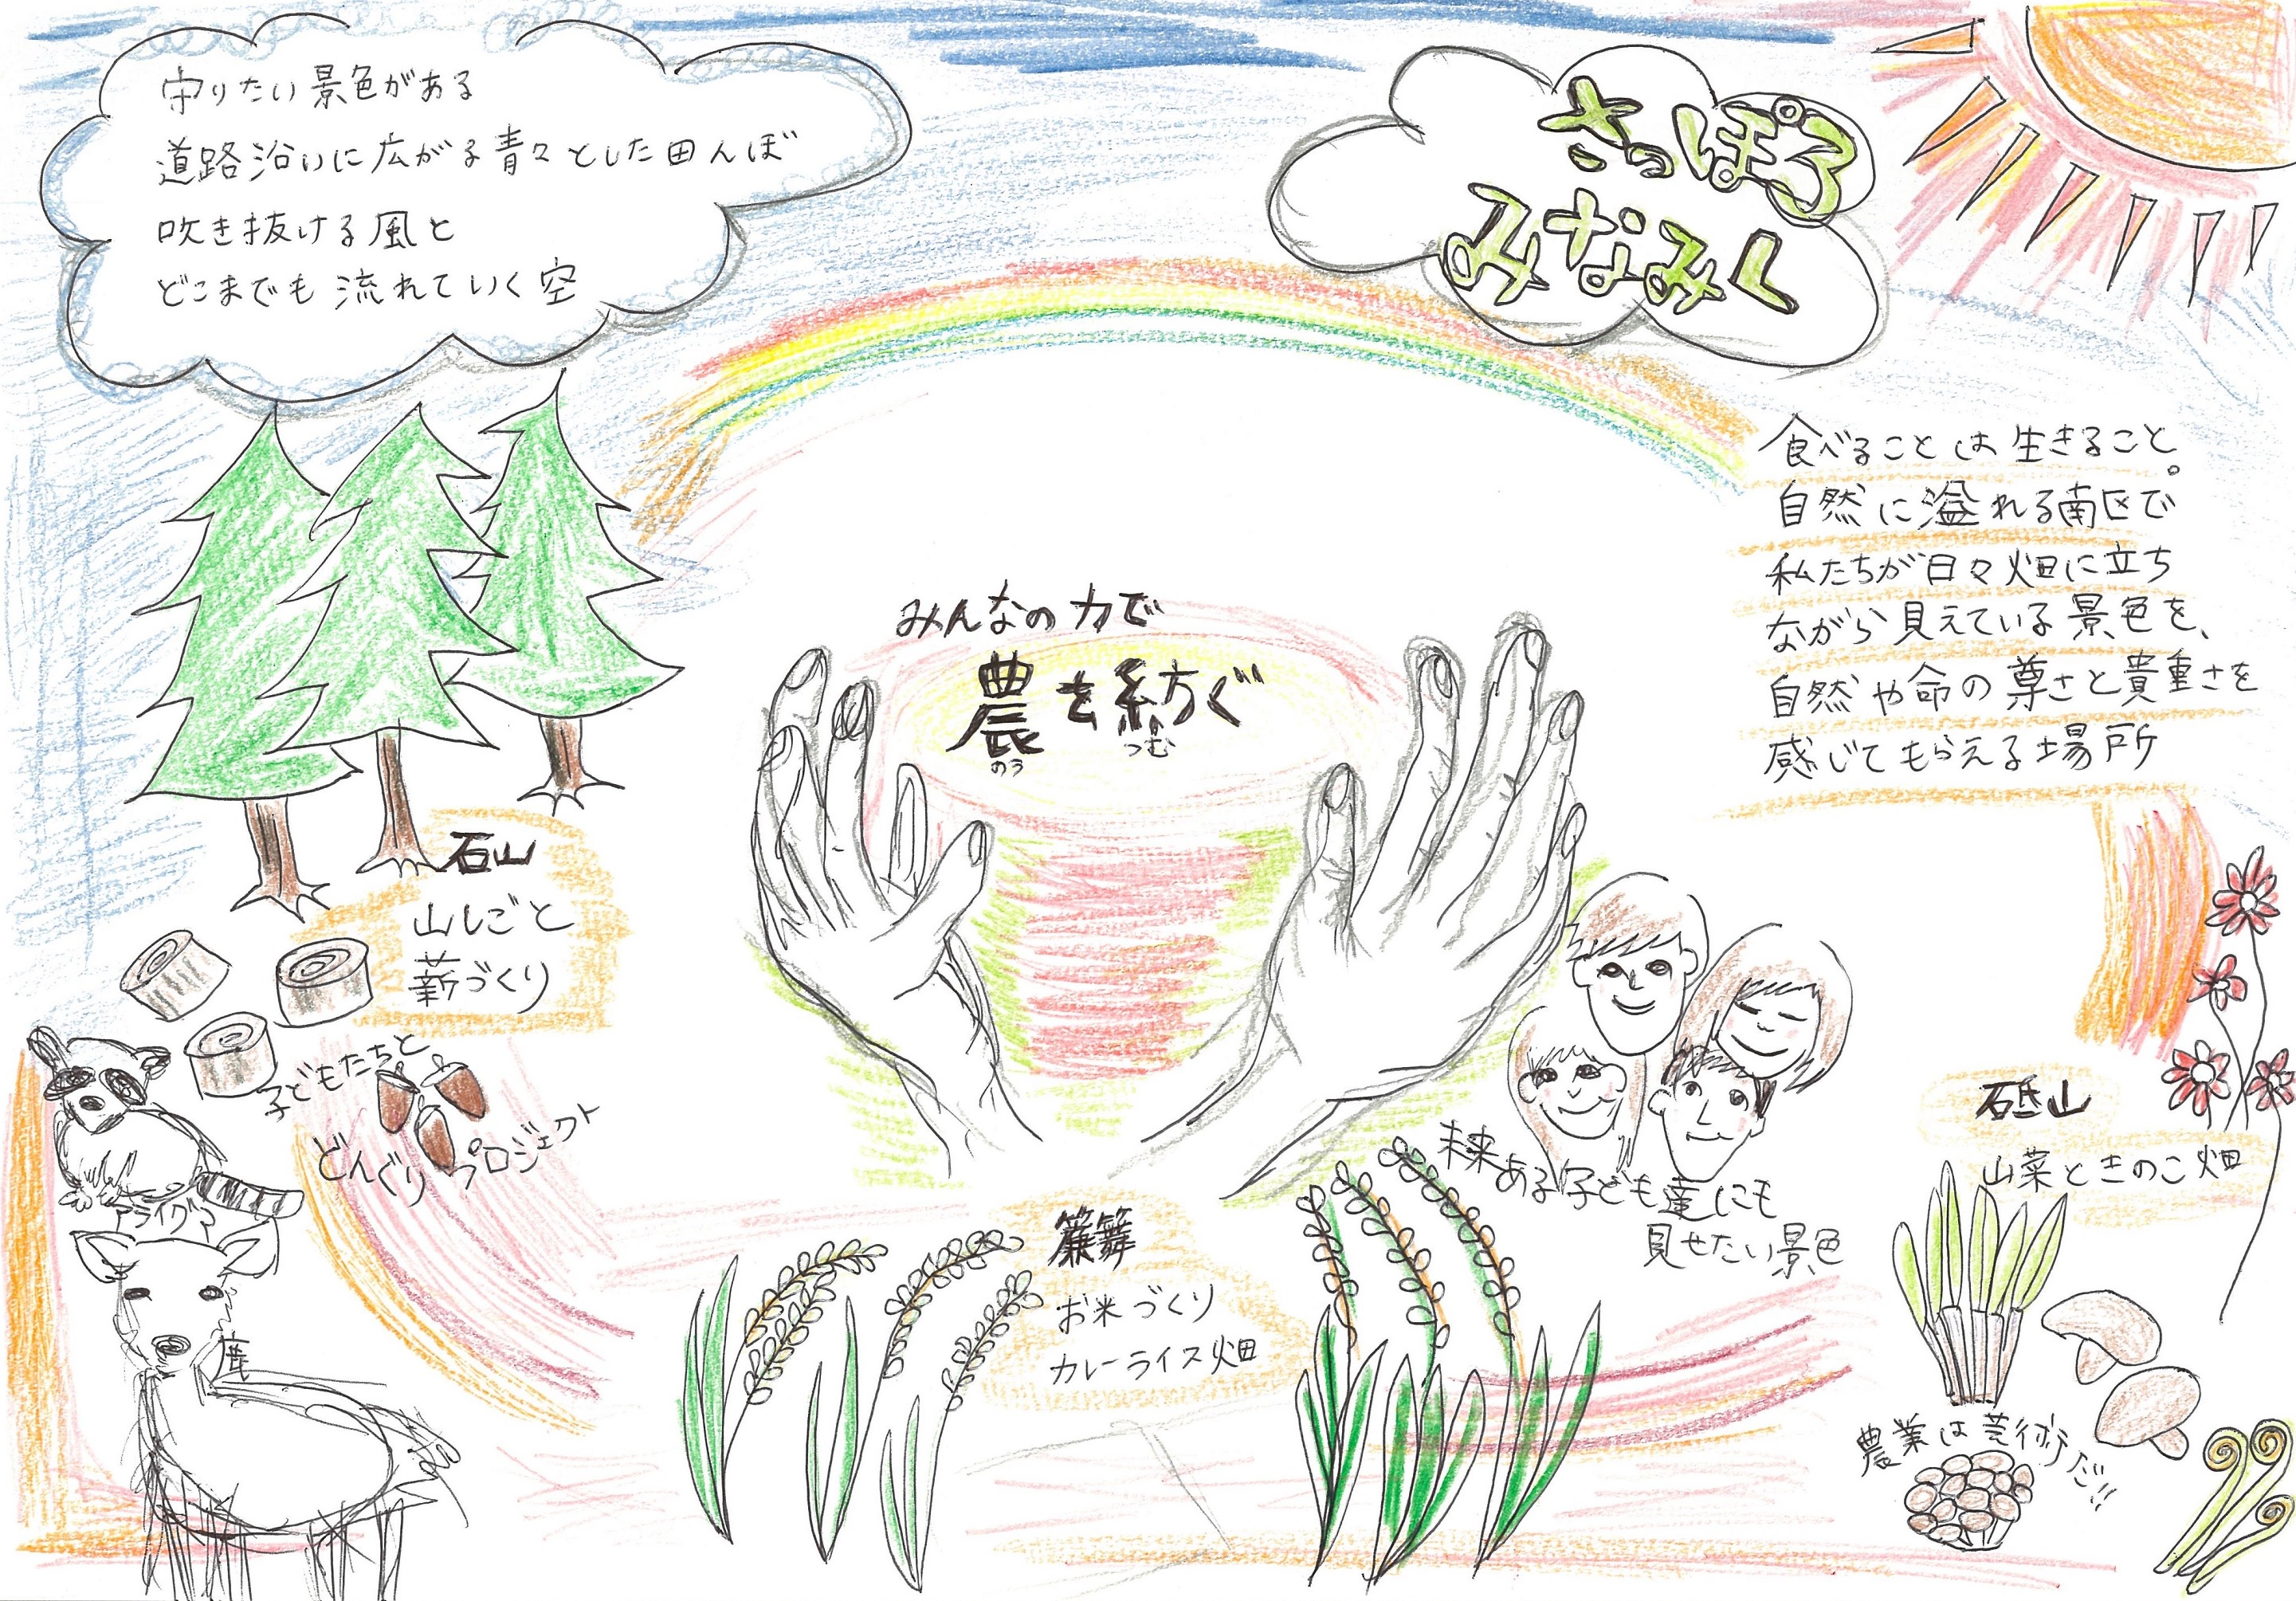 守りたい景色がある
道路沿いに広がる青々とした田んぼ
吹き抜ける風と
どこまでも流れていく空
さっぽろ
みなみく
食べることは生きること。
自然に溢れる南区で
私たちが日々畑に立ち
ながら見えている景色を、
自然や命の尊さと貴重さを
感じてもらえる場所
みんなの力で
農を紡ぐ
のう つむ
石山
山しごと
薪づくり
子どもたちと
どんぐりプロジェクト
アライグマ
鹿
簾舞
お米づくり
カレーライス畑
未来ある子ども達にも
見せたい景色
砥山
山菜ときのこ畑
農業は芸術だ!!